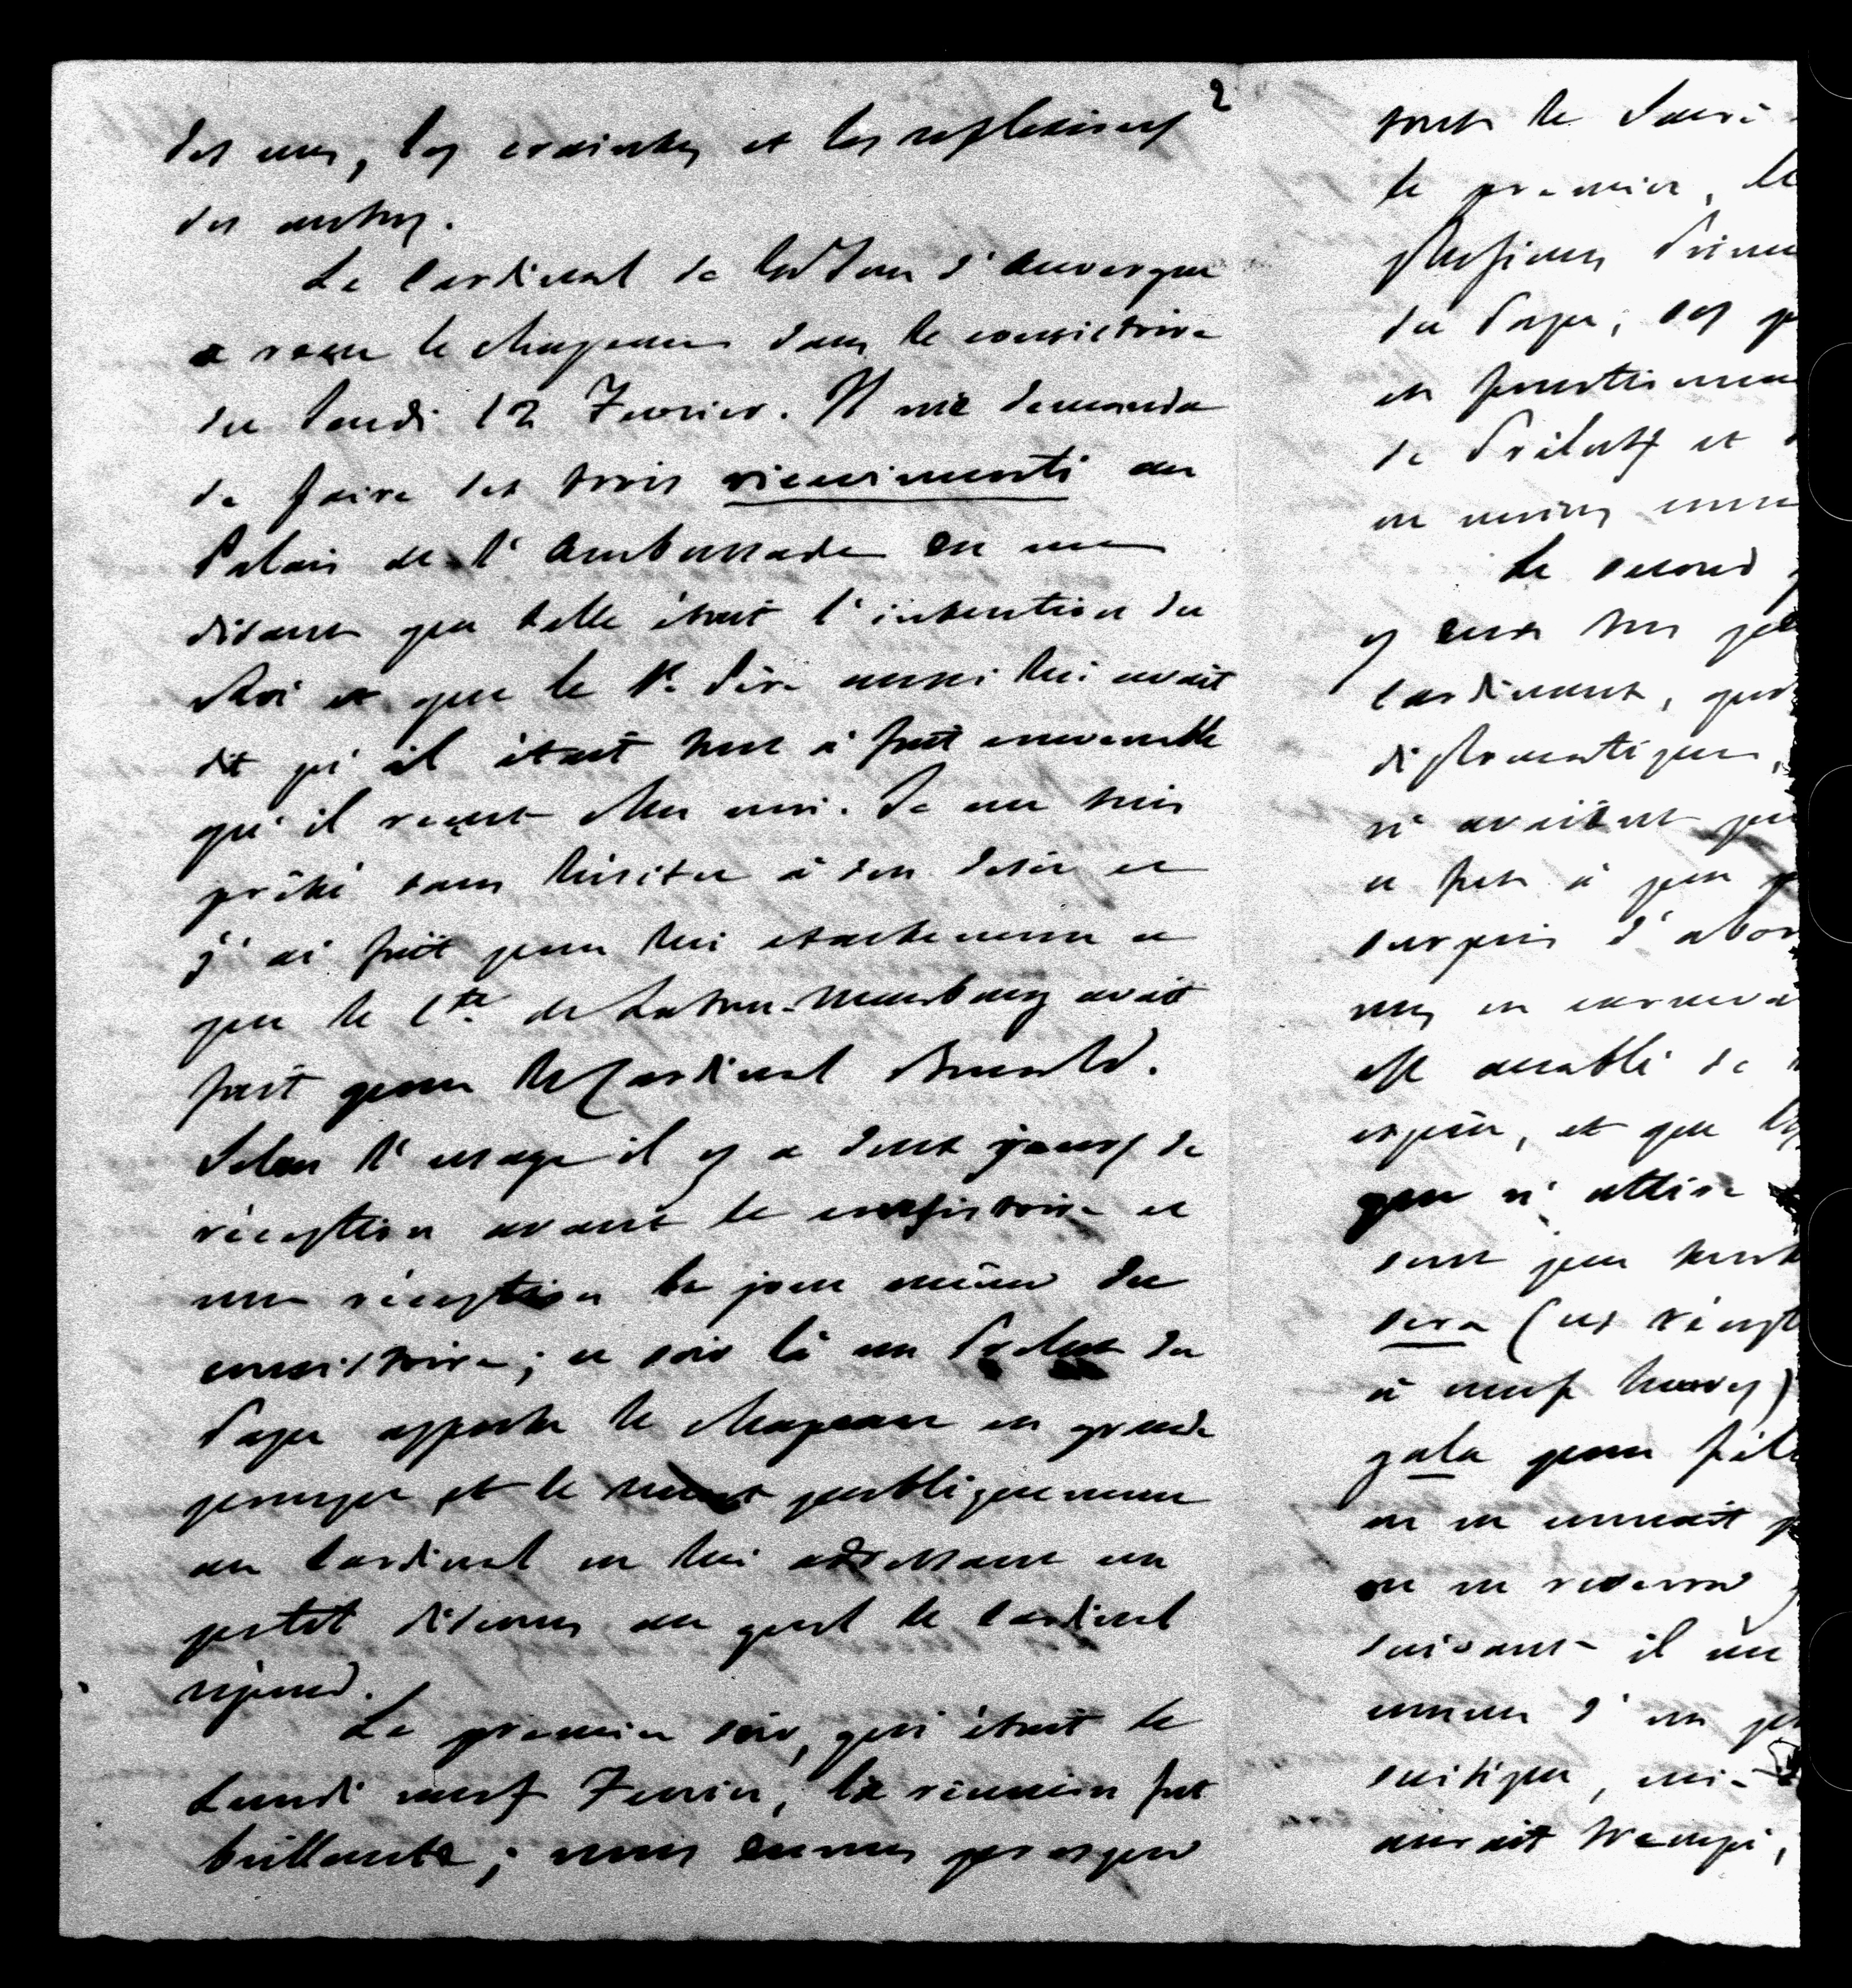 2
des uns, les craintes et les reflexions
des autres.
Le Cardinal de Latour d'Auvergne
a reçu le chapeau dans le consistoire
du Jeudi 12 Fevrier. Il me demanda
de faire ses trois ricevimenti au
Palais de l'Ambassade en me
disant que telle était l'intention du
Roi et que le St. Père aussi lui avait
dit qu'il était tout à fait convenable
qu'il reçut chez moi. Je me suis
prêté sans hésiter à son desir et
j'ai fait pour lui exactement ce
que le Cte de Latour-Maubourg avait
fait pour le Cardinal Bonald.
Selon l'usage il y a deux jours de
réception avant le consistoire et
une réception le jour même du
consistoire; ce soir là un Prélat du
Pape apporte le chapeau en grande
pompe et le remet publiquement
au Cardinal en lui adressant un
petit discours au quel le Cardinal
répond.
Le premier soir, qui était le
Lundi neuf Fevrier, la réunion fut
brillante; nous eumes presque
tout le Sacré
le premier, le
plusieurs Princ
du Pape, ses p
en fonctionnai
de Prélats et
au moins
Le second
y eut tous
Cardinaux, quel
diplomatique,
n'avaient pu
a fut à peu p
surpris d'abor
mes en carnava
est accablé de
espèce, et que les
que n'attire
sont peu
sera (ces récept
à neuf heures)
gala pour
on en
on en
suivant il
comme d'un pe
critique,
aurait trempé,